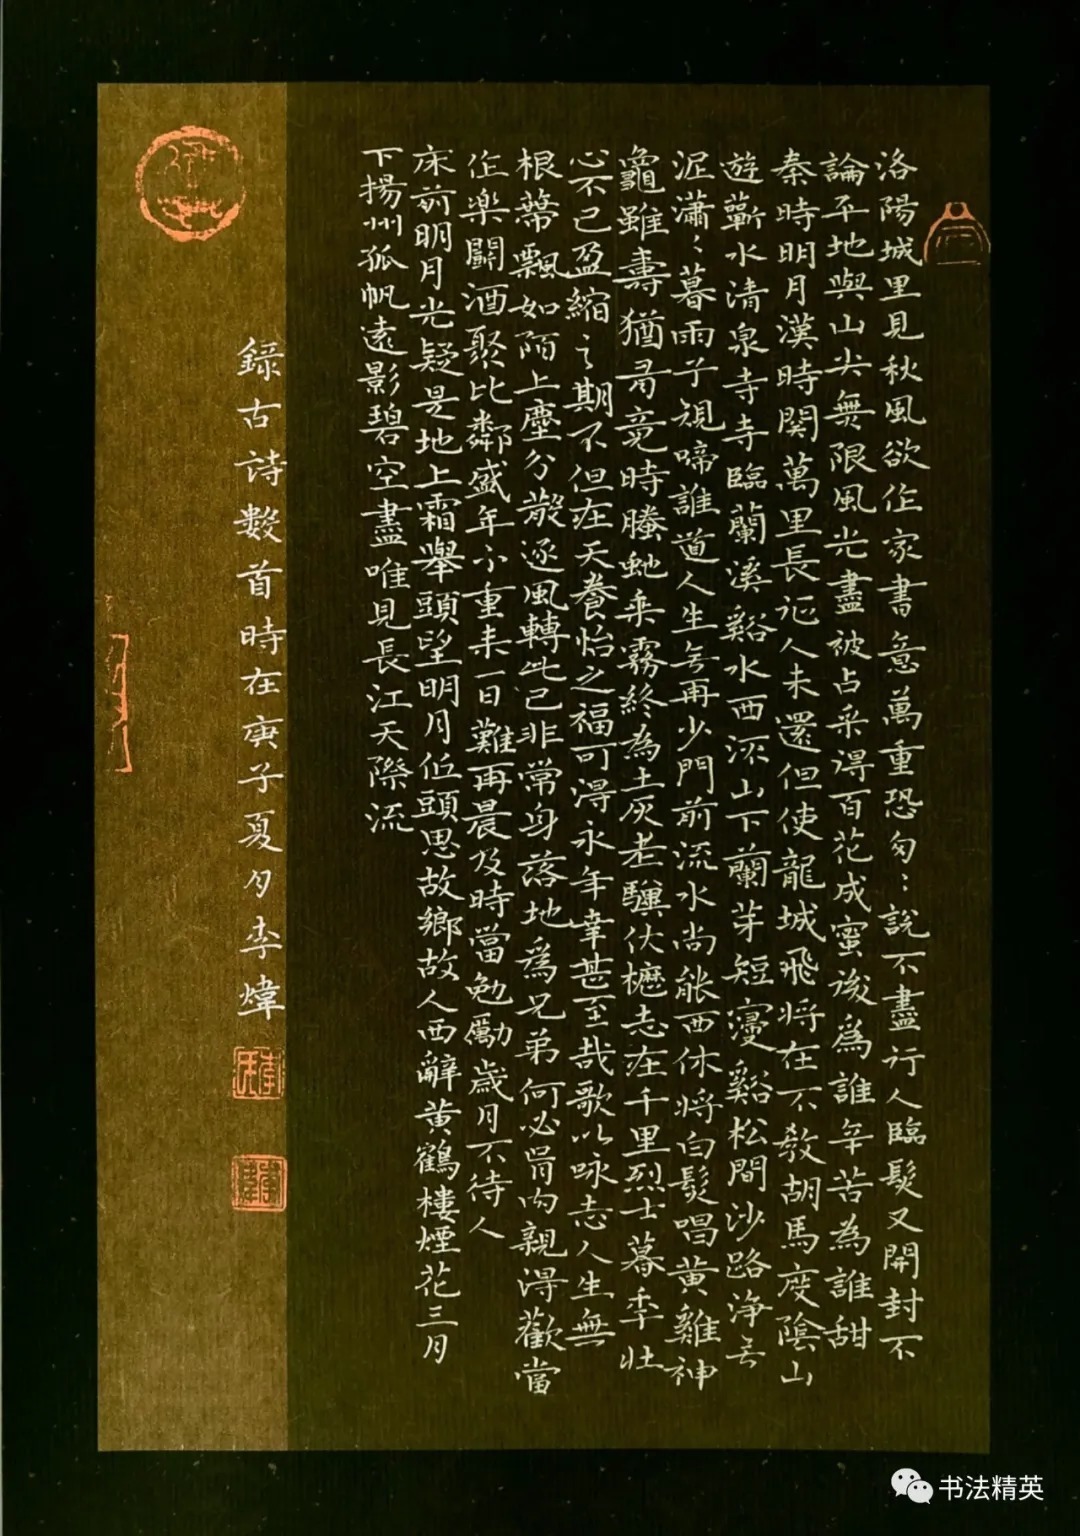 洛陽城里見秋風欲作家書意萬重恐匆〻說不盡行人臨髮又開封不
論平地與山尖無限風光盡被占采得百花成蜜後爲誰辛苦為誰甜
秦時明月漢時関萬里長征人未還但使龍城飛将在不教胡馬度陰山
遊蘄水清泉寺寺臨蘭溪谿水西流山下蘭芽短浸谿松間沙路淨无
泥瀟〻暮雨子規啼誰道人生无再少門前流水尚能西休將白髮唱黄雞神
龜雖壽猶有竟時騰虵乘霧終為土灰老驥伏櫪志在千里烈士暮年壯
心不已盈縮之期不但在天養怡之福可得永年幸甚至哉歌以咏志人生無
根蔕飄如陌上塵分散逐風轉此已非常身落地爲兄弟何必骨肉親得歡當
作樂鬭酒聚比鄰盛年不重来一日難再晨及時當勉勵歲月不待人
床前明月光疑是地上霜舉頭望明月低頭思故鄉故人西辭黄鶴樓煙花三月
下揚州孤帆遠影碧空盡唯見長江天際流
録古詩數首時在庚子夏月李煒
书法精英